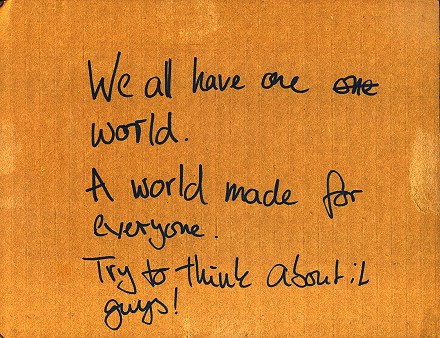 We all have one one
world.
A world made for
everyone.
Try to think about it
guys!